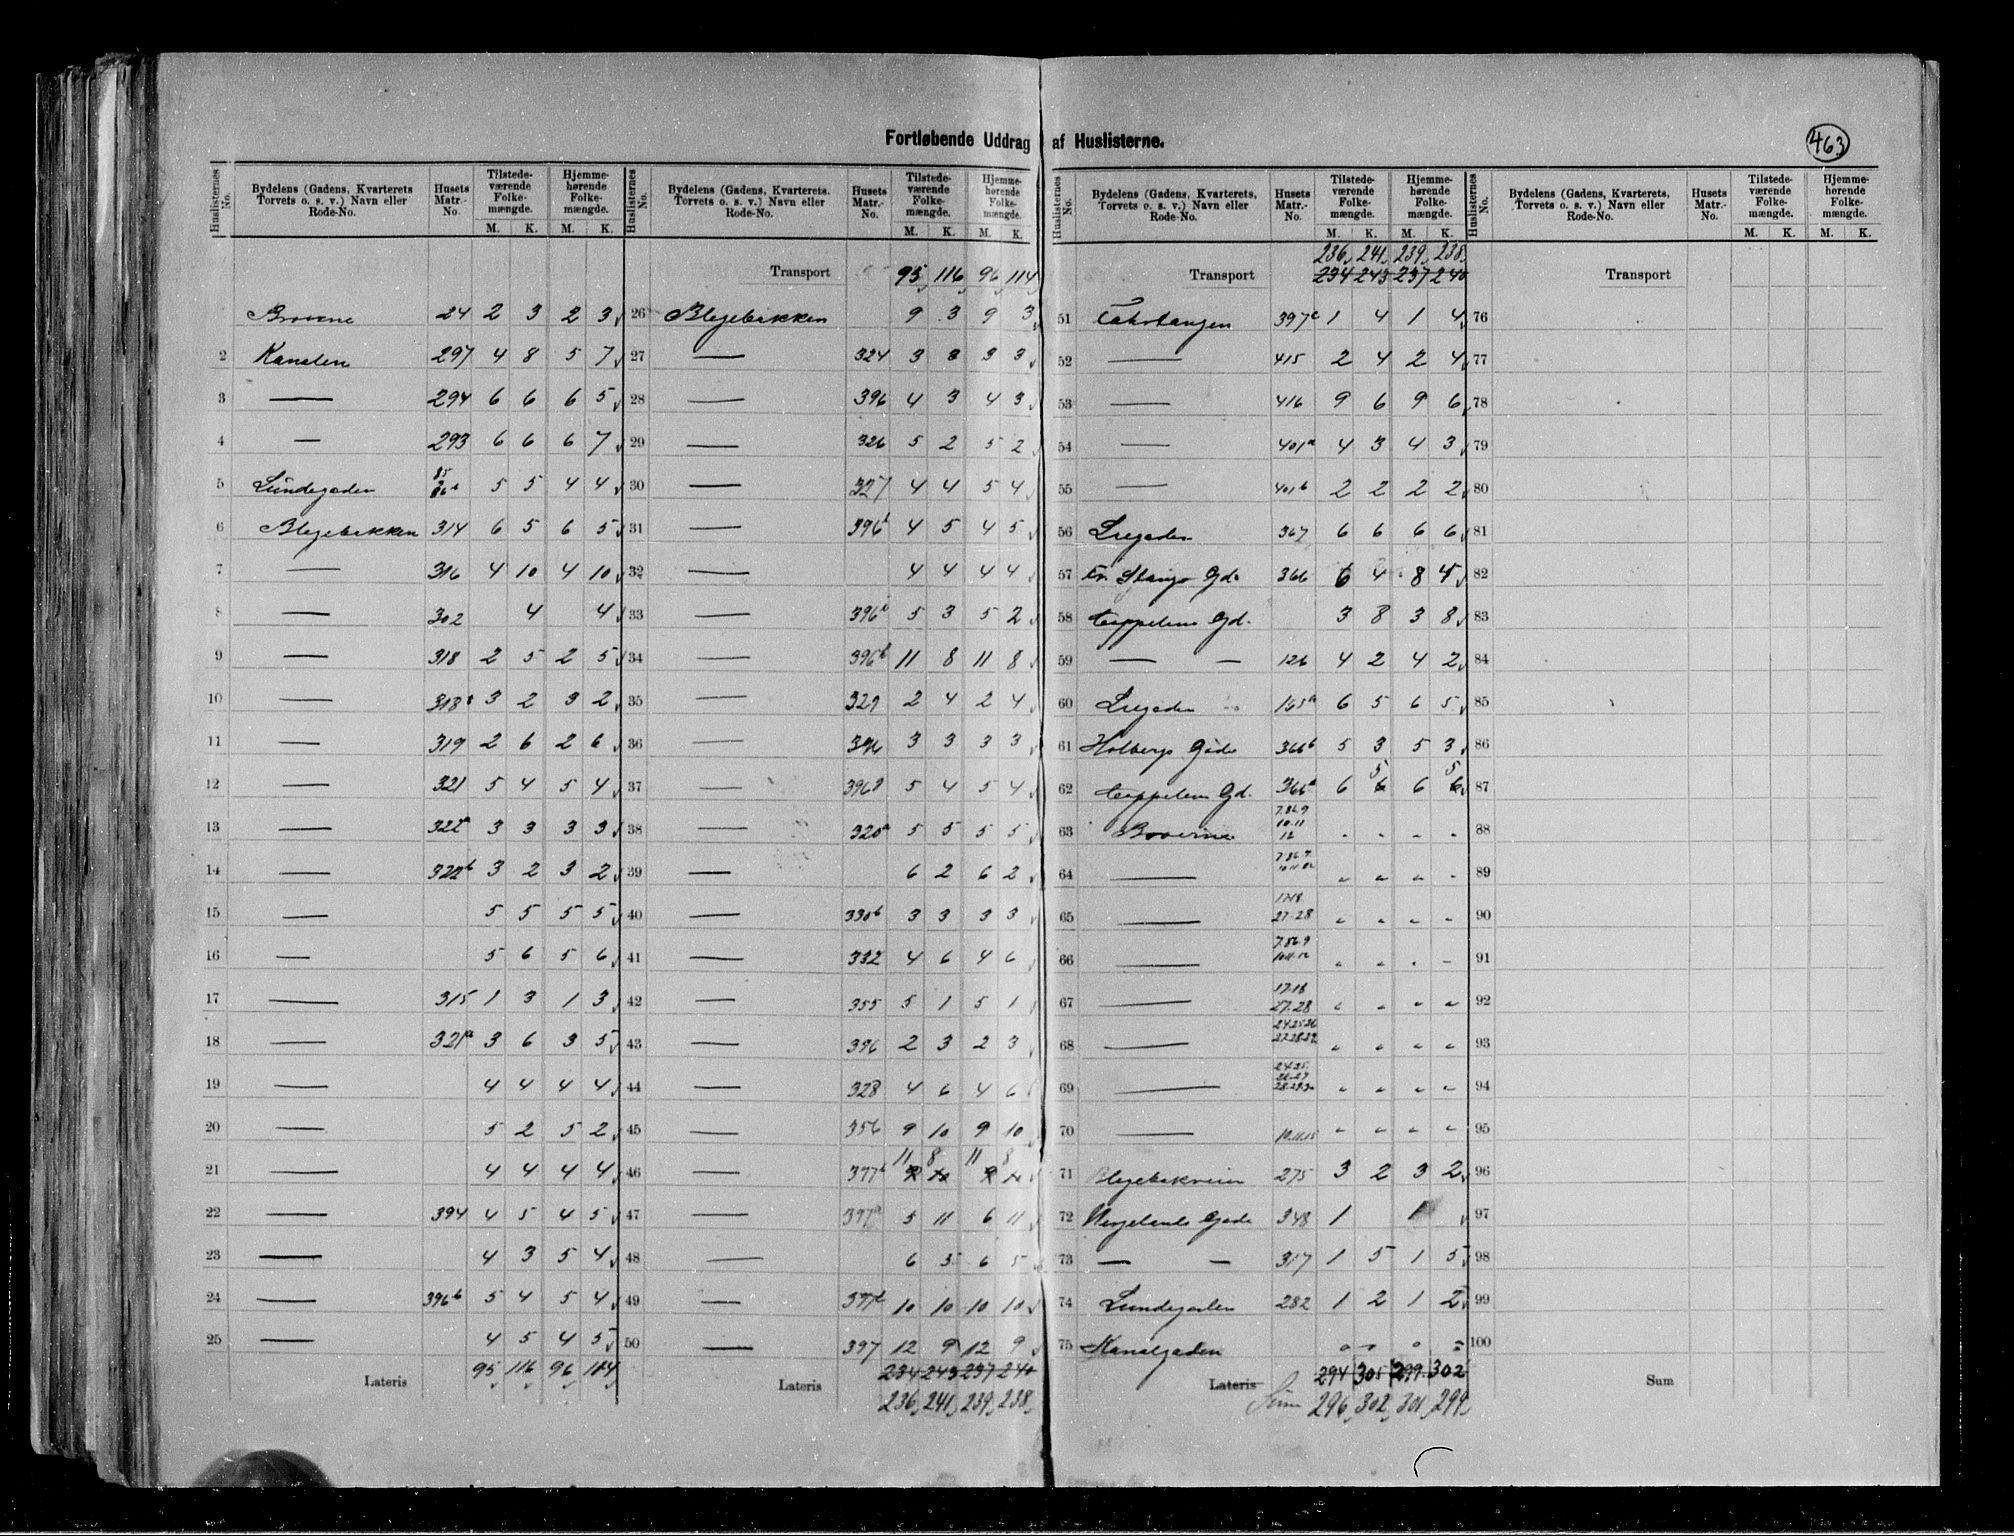 Fortløbende Uddrag af Huslisterne.
463
Huslisternes No. | Bydelens (Gadens, Kvarterets Torvets o. s. v.) Navn eller Rode-No. | Husets Matr.-No. | Tilstedeværende Folkemængde. M. K. | Hjemmehørende Folkemængde. M. K.
Brovene 24 2 3 2 3
2 Kanalen 297 4 8 5 7
3 — 294 6 6 6 5
4 — 293 6 6 6 7
5 Lundegaden 85 86b 5 5 4 4
6 Blegebakken 314 6 5 6 5
7 — 316 4 10 4 10
8 — 302 4 4
9 — 318 2 5 2 5
10 — 318 3 2 3 2
11 — 319 2 6 2 6
12 — 321 5 4 5 4
13 — 322a 3 3 3 3
14 — 322b 3 2 3 2
15 — 5 5 5 5
16 — 5 6 5 6
17 — 315 1 3 1 3
18 — 321a 3 6 3 5
19 — 4 4 4 4
20 — 5 2 5 2
21 — 4 4 4 4
22 — 394 4 5 4 5
23 — 4 3 5 4
24 — 396b 5 4 5 4
25 — 4 5 4 5
Lateris 95 116 96 114
Huslisternes No. | Bydelens (Gadens, Kvarterets. Torvets o. s. v.) Navn eller Rode-No. | Husets Matr.-No. | Tilstedeværende Folkemængde. M. K. | Hjemmehørende Folkemængde. M. K.
Transport 95 116 96 114
26 Blegebakken 9 3 9 3
27 — 324 3 3 3 3
28 — 396 4 3 4 3
29 — 326 5 2 5 2
30 — 327 4 4 5 4
31 — 396 4 5 4 5
32 — 4 4 4 4
33 — 396 5 3 5 2
34 — 396b 11 8 11 8
35 — 329 2 4 2 4
36 — 396 3 3 3 3
37 — 396 5 4 5 4
38 — 320a 5 5 5 5
39 — 6 2 6 2
40 — 330b 3 3 3 3
41 — 332 4 6 4 6
42 — 355 5 1 5 1
43 — 396 2 3 2 3
44 — 328 4 6 4 6
45 — 356 9 10 9 10
46 — 377 11 8 11 8
47 — 397a 5 11 6 11
48 — 6 5 6 5
49 — 397 10 10 10 10
50 — 397 12 9 12 9
Lateris 234 243 237 240
236 241 239 238
Huslisternes No. | Bydelens (Gadens, Kvarterets Torvets o. s. v.) Navn eller Rode-No. | Husets Matr.-No. | Tilstedeværende Folkemængde. M. K. | Hjemmehørende Folkemængde. M. K.
236 241 239 238
Transport 234 243 237 240
51 397c 1 4 1 4
52 — 415 2 4 2 4
53 — 416 9 6 9 6
54 — 401a 4 3 4 3
55 — 401b 2 2 2 2
56 Liegaden 367 6 6 6 6
57 Fr. Stangs Gd. 366 6 4 8 4
58 Cappelens Gd. 3 8 3 8
59 — — 126 4 2 4 2
60 Liegaden 165a 6 5 6 5
61 Holbergs Gade 366b 5 3 5 3
62 Cappelens Gd. 366a 6 5 6 5
63 Brovene 7.8&9 10.11 12 - - - -
64 — 7.8&9 10.11.12 - - - -
65 — 17.18 27.28 - - - -
66 — 7.8&9 10.11.12 - - - -
67 — 17.18 27.28 - - - -
68 — 24.25.26 27.28.29 - - - -
69 — 24.25. 26.27 - - - -
70 — 10.11.15 - - - -
71 Blegebakveien 275 3 2 3 2
72 Wergelands Gade 348 1 1
73 — — 317 1 5 1 5
74 Lundegaden 282 1 2 1 2
75 Kanalgaden
Lateris 294 305 299 302
Sum 296 302 301 299
Huslisternes No. | Bydelens (Gadens, Kvarterets, Torvets o. s. v.) Navn eller Rode-No. | Husets Matr.-No. | Tilstedeværende Folkemængde. M. K. | Hjemmehørende Folkemængde. M. K.
Transport
76
77
78
79
80
81
82
83
84
85
86
87
88
89
90
91
92
93
94
95
96
97
98
99
100
Sum